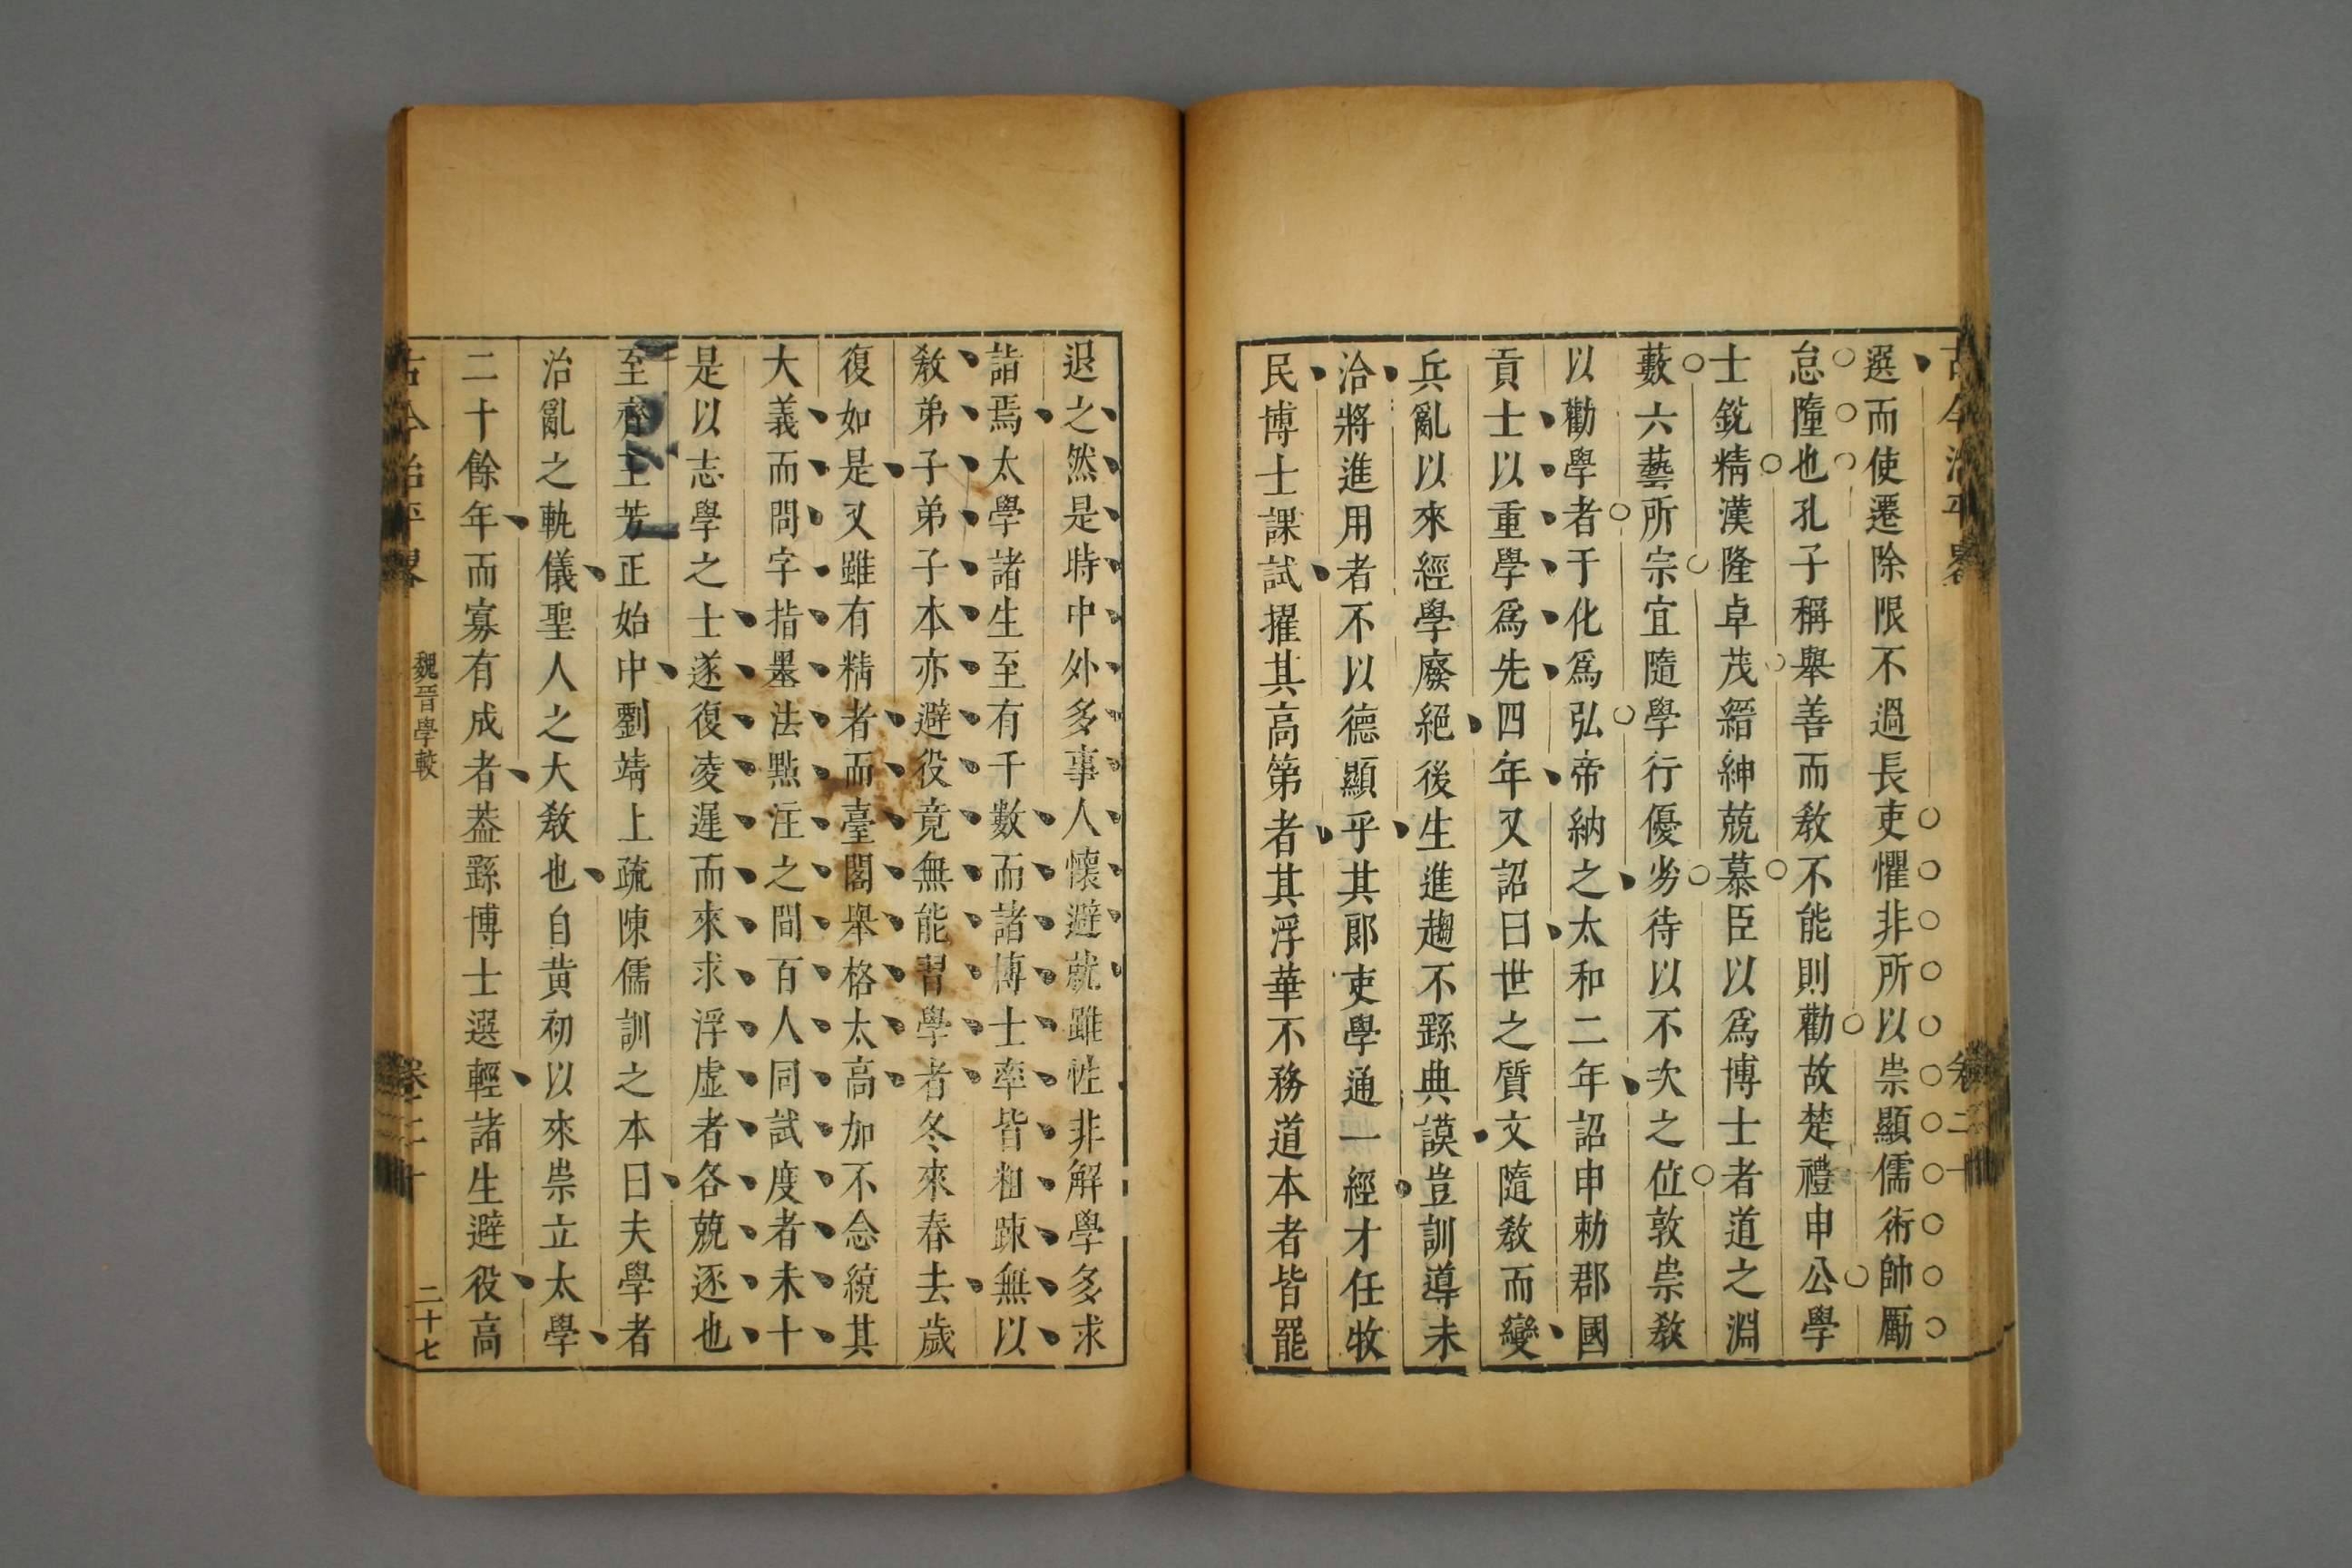 古今治平畧
卷二十
選而使遷除限不過長吏懼非所以崇顯儒術帥厲
怠隳也孔子稱舉善而教不能則勸故楚禮申公學
士銳精漢隆卓茂縉紳兢慕臣以爲博士者道之淵
藪六藝所宗宜隨學行優劣待以不次之位敦崇教
以勸學者于化爲弘帝納之太和二年詔申勑郡國
貢士以重學爲先四年又詔曰世之質文隨教而變
兵亂以來經學廢絕後生進趨不繇典謨豈訓導未
洽將進用者不以德顯乎其郎吏學通一經才任牧
民博士課試擢其高第者其浮華不務道本者皆罷
退之然是時中外多事人懷避就雖性非解學多求
詣焉太學諸生至有千數而諸博士率皆粗踈無以
教弟子弟子本亦避役竟無能習學者冬來春去歲
復如是又雖有精者而臺閣舉格太高加不念統其
大義而問字指墨法點注之間百人同試度者未十
是以志學之士遂復凌遲而來求浮虛者各兢逐也
至齊王芳正始中劉靖上疏陳儒訓之本曰夫學者
治亂之軌儀聖人之大教也自黃初以來崇立太學
二十餘年而寡有成者葢繇博士選輕諸生避役高
古今治平畧
魏晉學較
卷二十
二十七